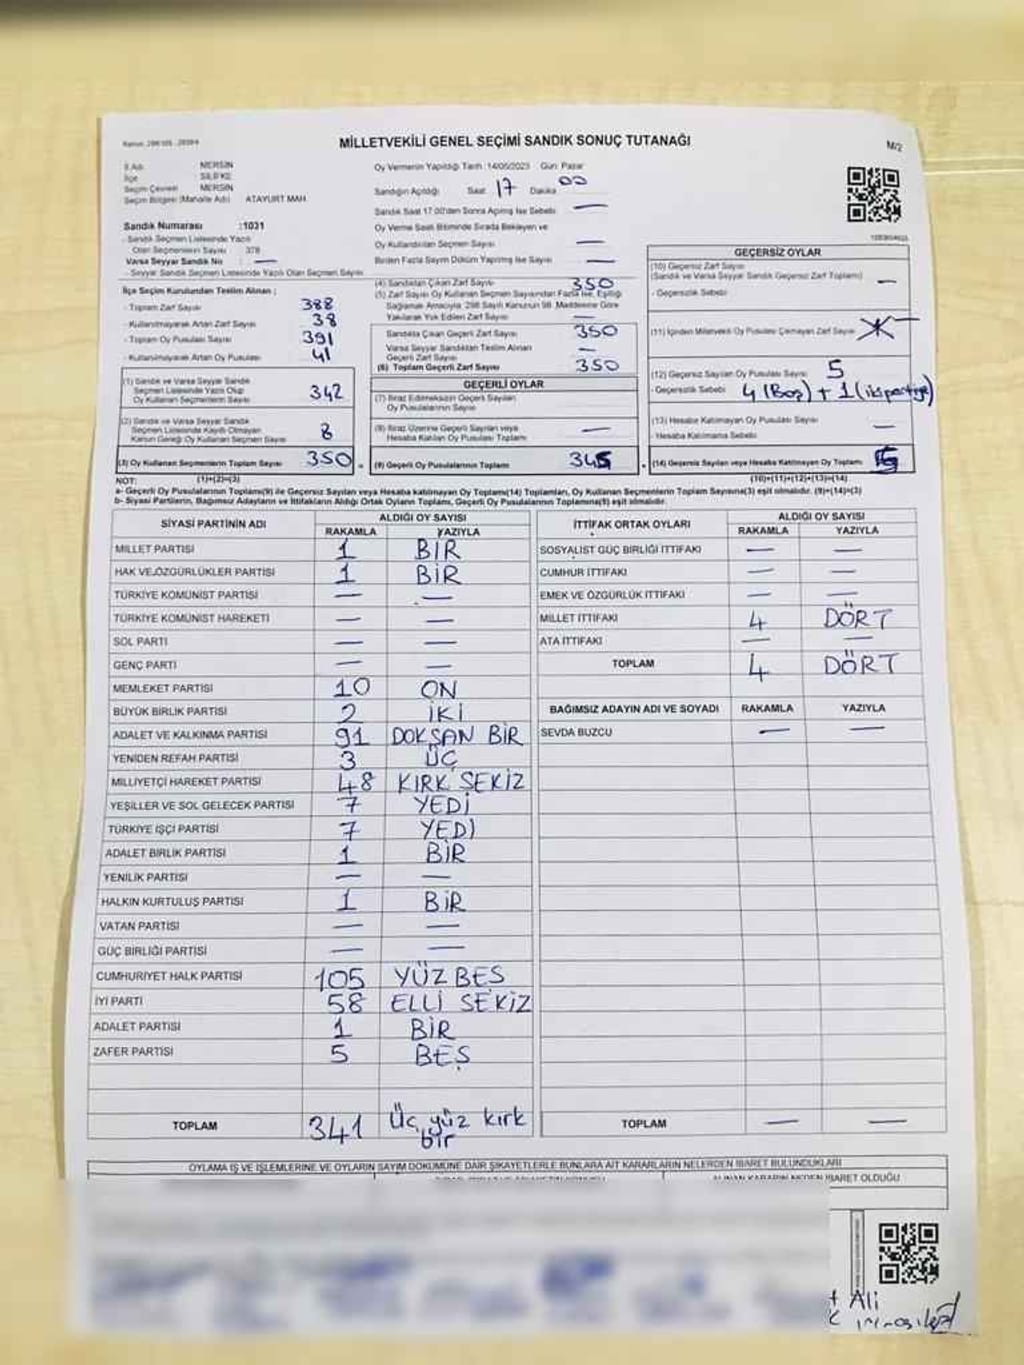 MİLLETVEKİLİ GENEL SEÇİMİ SANDIK SONUÇ TUTANAĞI
M/2
İl Adı MERSİN
İlçe SİLİFKE
Seçim Çevresi MERSİN
Seçim Bölgesi (Mahalle Adı) ATAYURT MAH.
Oy Vermenin Yapıldığı Tarih :14/05/2023 Gün: Pazar
Sandığın Açıldığı Saat 17 Dakika 00
Sandık Saat 17.00'den Sonra Açılmış İse Sebebi: —
Oy Verme Saati Bitiminde Sırada Bekleyen ve
Oy Kullandırılan Seçmen Sayısı —
Birden Fazla Sayım Döküm Yapılmış İse Sayısı —
Sandık Numarası :1031
- Sandık Seçmen Listesinde Yazılı
Olan Seçmenlerin Sayısı 378
Varsa Seyyar Sandık No : —
- Seyyar Sandık Seçmen Listesinde Yazılı Olan Seçmen Sayısı
İlçe Seçim Kurulundan Teslim Alınan ;
- Toplam Zarf Sayısı 388
- Kullanılmayarak Artan Zarf Sayısı 38
- Toplam Oy Pusulası Sayısı 391
- Kullanılmayarak Artan Oy Pusulası 41
(1) Sandık ve Varsa Seyyar Sandık
Seçmen Listesinde Yazılı Olup
Oy Kullanan Seçmenlerin Sayısı 342
(2) Sandık ve Varsa Seyyar Sandık
Seçmen Listesinde Kayıtlı Olmayan
Kanun Gereği Oy Kullanan Seçmen Sayısı 8
(3) Oy Kullanan Seçmenlerin Toplam Sayısı 350
(4) Sandıktan Çıkan Zarf Sayısı 350
(5) Zarf Sayısı Oy Kullanan Seçmen Sayısından Fazla ise, Eşitliği
Sağlamak Amacıyla, 298 Sayılı Kanunun 98. Maddesine Göre
Yakılarak Yok Edilen Zarf Sayısı —
Sandıkta Çıkan Geçerli Zarf Sayısı 350
Varsa Seyyar Sandıktan Teslim Alınan
Geçerli Zarf Sayısı —
(6) Toplam Geçerli Zarf Sayısı 350
GEÇERLİ OYLAR
(7) İtiraz Edilmeksizin Geçerli Sayılan
Oy Pusulalarının Sayısı
(8) İtiraz Üzerine Geçerli Sayılan veya
Hesaba Katılan Oy Pusulaları Toplamı —
(9) Geçerli Oy Pusulalarının Toplamı 345
GEÇERSİZ OYLAR
(10) Geçersiz Zarf Sayısı
(Sandık ve Varsa Seyyar Sandık Geçersiz Zarf Toplamı) —
- Geçersizlik Sebebi:
(11) İçinden Milletvekili Oy Pusulası Çıkmayan Zarf Sayısı —
(12) Geçersiz Sayılan Oy Pusulası Sayısı 5
- Geçersizlik Sebebi: 4 (Boş) + 1 (iki partiye)
(13) Hesaba Katılmayan Oy Pusulası Sayısı —
- Hesaba Katılmama Sebebi:
(14) Geçersiz Sayılan veya Hesaba Katılmayan Oy Toplamı 5
NOT: (1)+(2)=(3) (10)+(11)+(12)+(13)=(14)
a- Geçerli Oy Pusulalarının Toplamı(9) ile Geçersiz Sayılan veya Hesaba katılmayan Oy Toplamı(14) Toplamları, Oy Kullanan Seçmenlerin Toplam Sayısına(3) eşit olmalıdır. (9)+(14)=(3)
b- Siyasi Partilerin, Bağımsız Adayların ve İttifakların Aldığı Ortak Oyların Toplamı, Geçerli Oy Pusulalarının Toplamına(9) eşit olmalıdır.
SİYASİ PARTİNİN ADI ALDIĞI OY SAYISI
RAKAMLA YAZIYLA
MİLLET PARTİSİ 1 BİR
HAK VE ÖZGÜRLÜKLER PARTİSİ 1 BİR
TÜRKİYE KOMÜNİST PARTİSİ — —
TÜRKİYE KOMÜNİST HAREKETİ — —
SOL PARTİ — —
GENÇ PARTİ — —
MEMLEKET PARTİSİ 10 ON
BÜYÜK BİRLİK PARTİSİ 2 İKİ
ADALET VE KALKINMA PARTİSİ 91 DOKSAN BİR
YENİDEN REFAH PARTİSİ 3 ÜÇ
MİLLİYETÇİ HAREKET PARTİSİ 48 KIRK SEKİZ
YEŞİLLER VE SOL GELECEK PARTİSİ 7 YEDİ
TÜRKİYE İŞÇİ PARTİSİ 7 YEDİ
ADALET BİRLİK PARTİSİ 1 BİR
YENİLİK PARTİSİ — —
HALKIN KURTULUŞ PARTİSİ 1 BİR
VATAN PARTİSİ — —
GÜÇ BİRLİĞİ PARTİSİ — —
CUMHURİYET HALK PARTİSİ 105 YÜZ BEŞ
İYİ PARTİ 58 ELLİ SEKİZ
ADALET PARTİSİ 1 BİR
ZAFER PARTİSİ 5 BEŞ
TOPLAM 341 Üç yüz kırk
bir
İTTİFAK ORTAK OYLARI ALDIĞI OY SAYISI
RAKAMLA YAZIYLA
SOSYALİST GÜÇ BİRLİĞİ İTTİFAKI — —
CUMHUR İTTİFAKI — —
EMEK VE ÖZGÜRLÜK İTTİFAKI — —
MİLLET İTTİFAKI 4 DÖRT
ATA İTTİFAKI — —
TOPLAM 4 DÖRT
BAĞIMSIZ ADAYIN ADI VE SOYADI RAKAMLA YAZIYLA
SEVDA BUZCU — —
TOPLAM — —
OYLAMA İŞ VE İŞLEMLERİNE VE OYLARIN SAYIM DÖKÜMÜNE DAİR ŞİKAYETLERLE BUNLARA AİT KARARLARIN NELERDEN İBARET BULUNDUKLARI
ALINAN KARARIN NEDEN İBARET OLDUĞU
Ali